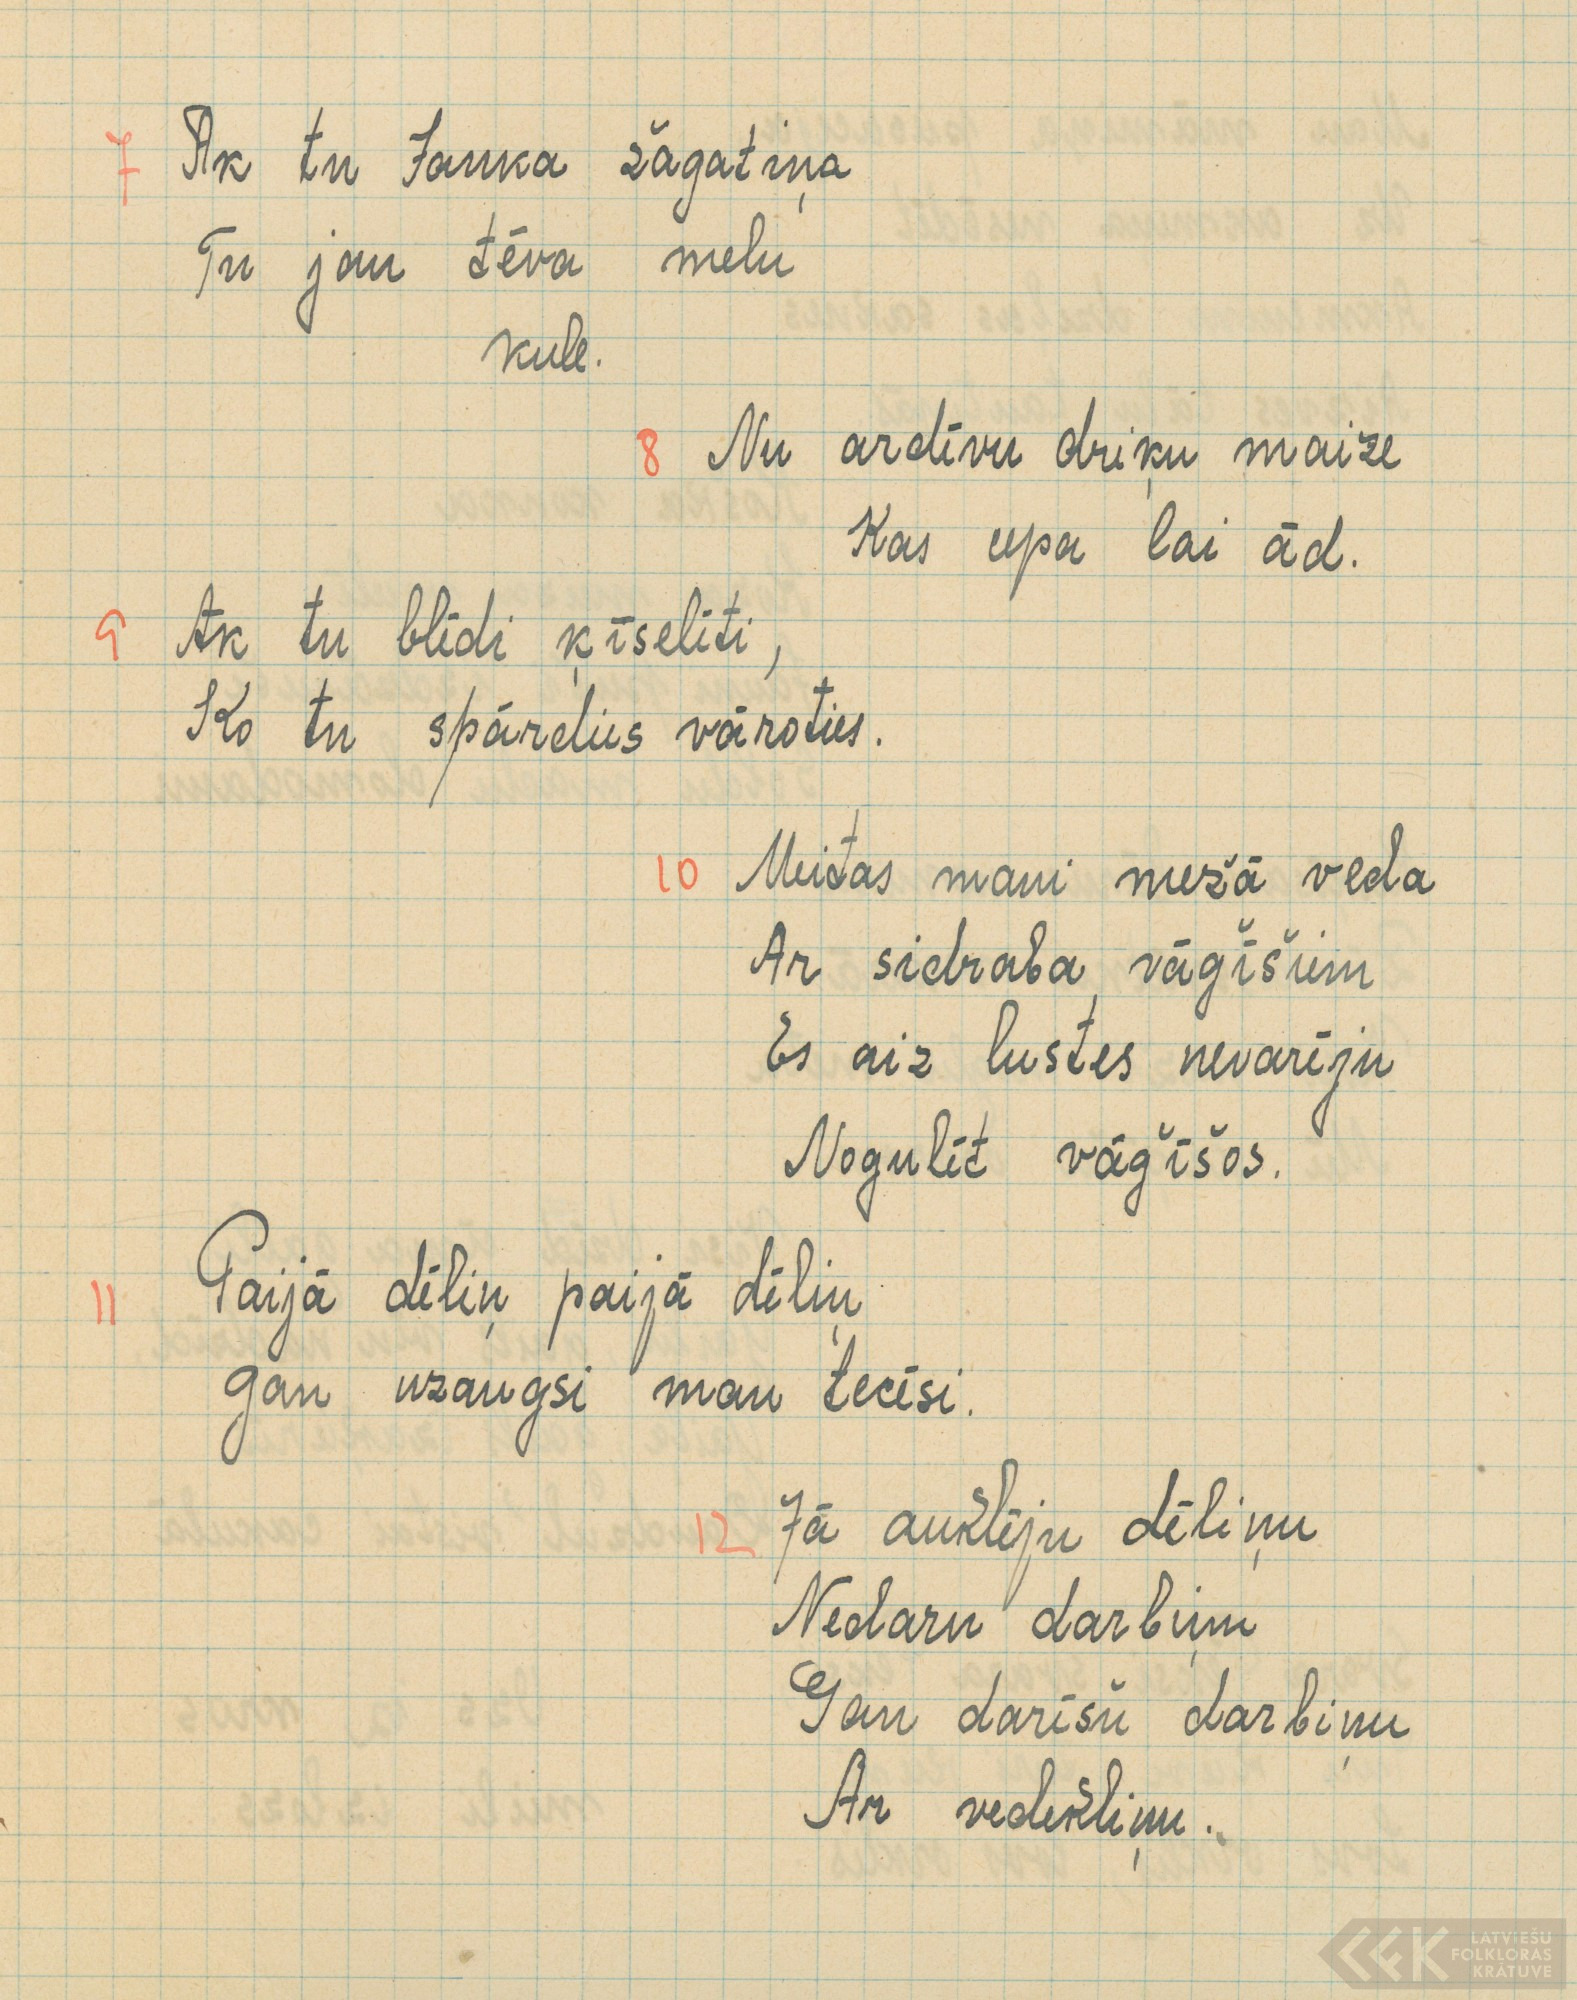 7 Ak tu Janka žagatiņa
Tu jau tēva melu
kule.
8 Nu ardīvu driķu maize
Kas upa lai ād.
9 Ak tu blēdi ķīselīti,
Ko tu spārdies vāroties.
10 Meitas mani mežā veda
Ar sidraba vāģīšiem
Es aiz lustes nevarēju
Nogulēt vāģīšos.
11 Paijā dēliņ paijā dēliņ
gan uzaugsi man tecēsi.
12 Jā auklēju dēliņu
Nedaru darbiņu
Gan darīšu darbiņu
Ar vedekliņu.
LATVIEŠU
FOLKLORAS
KRĀTUVE